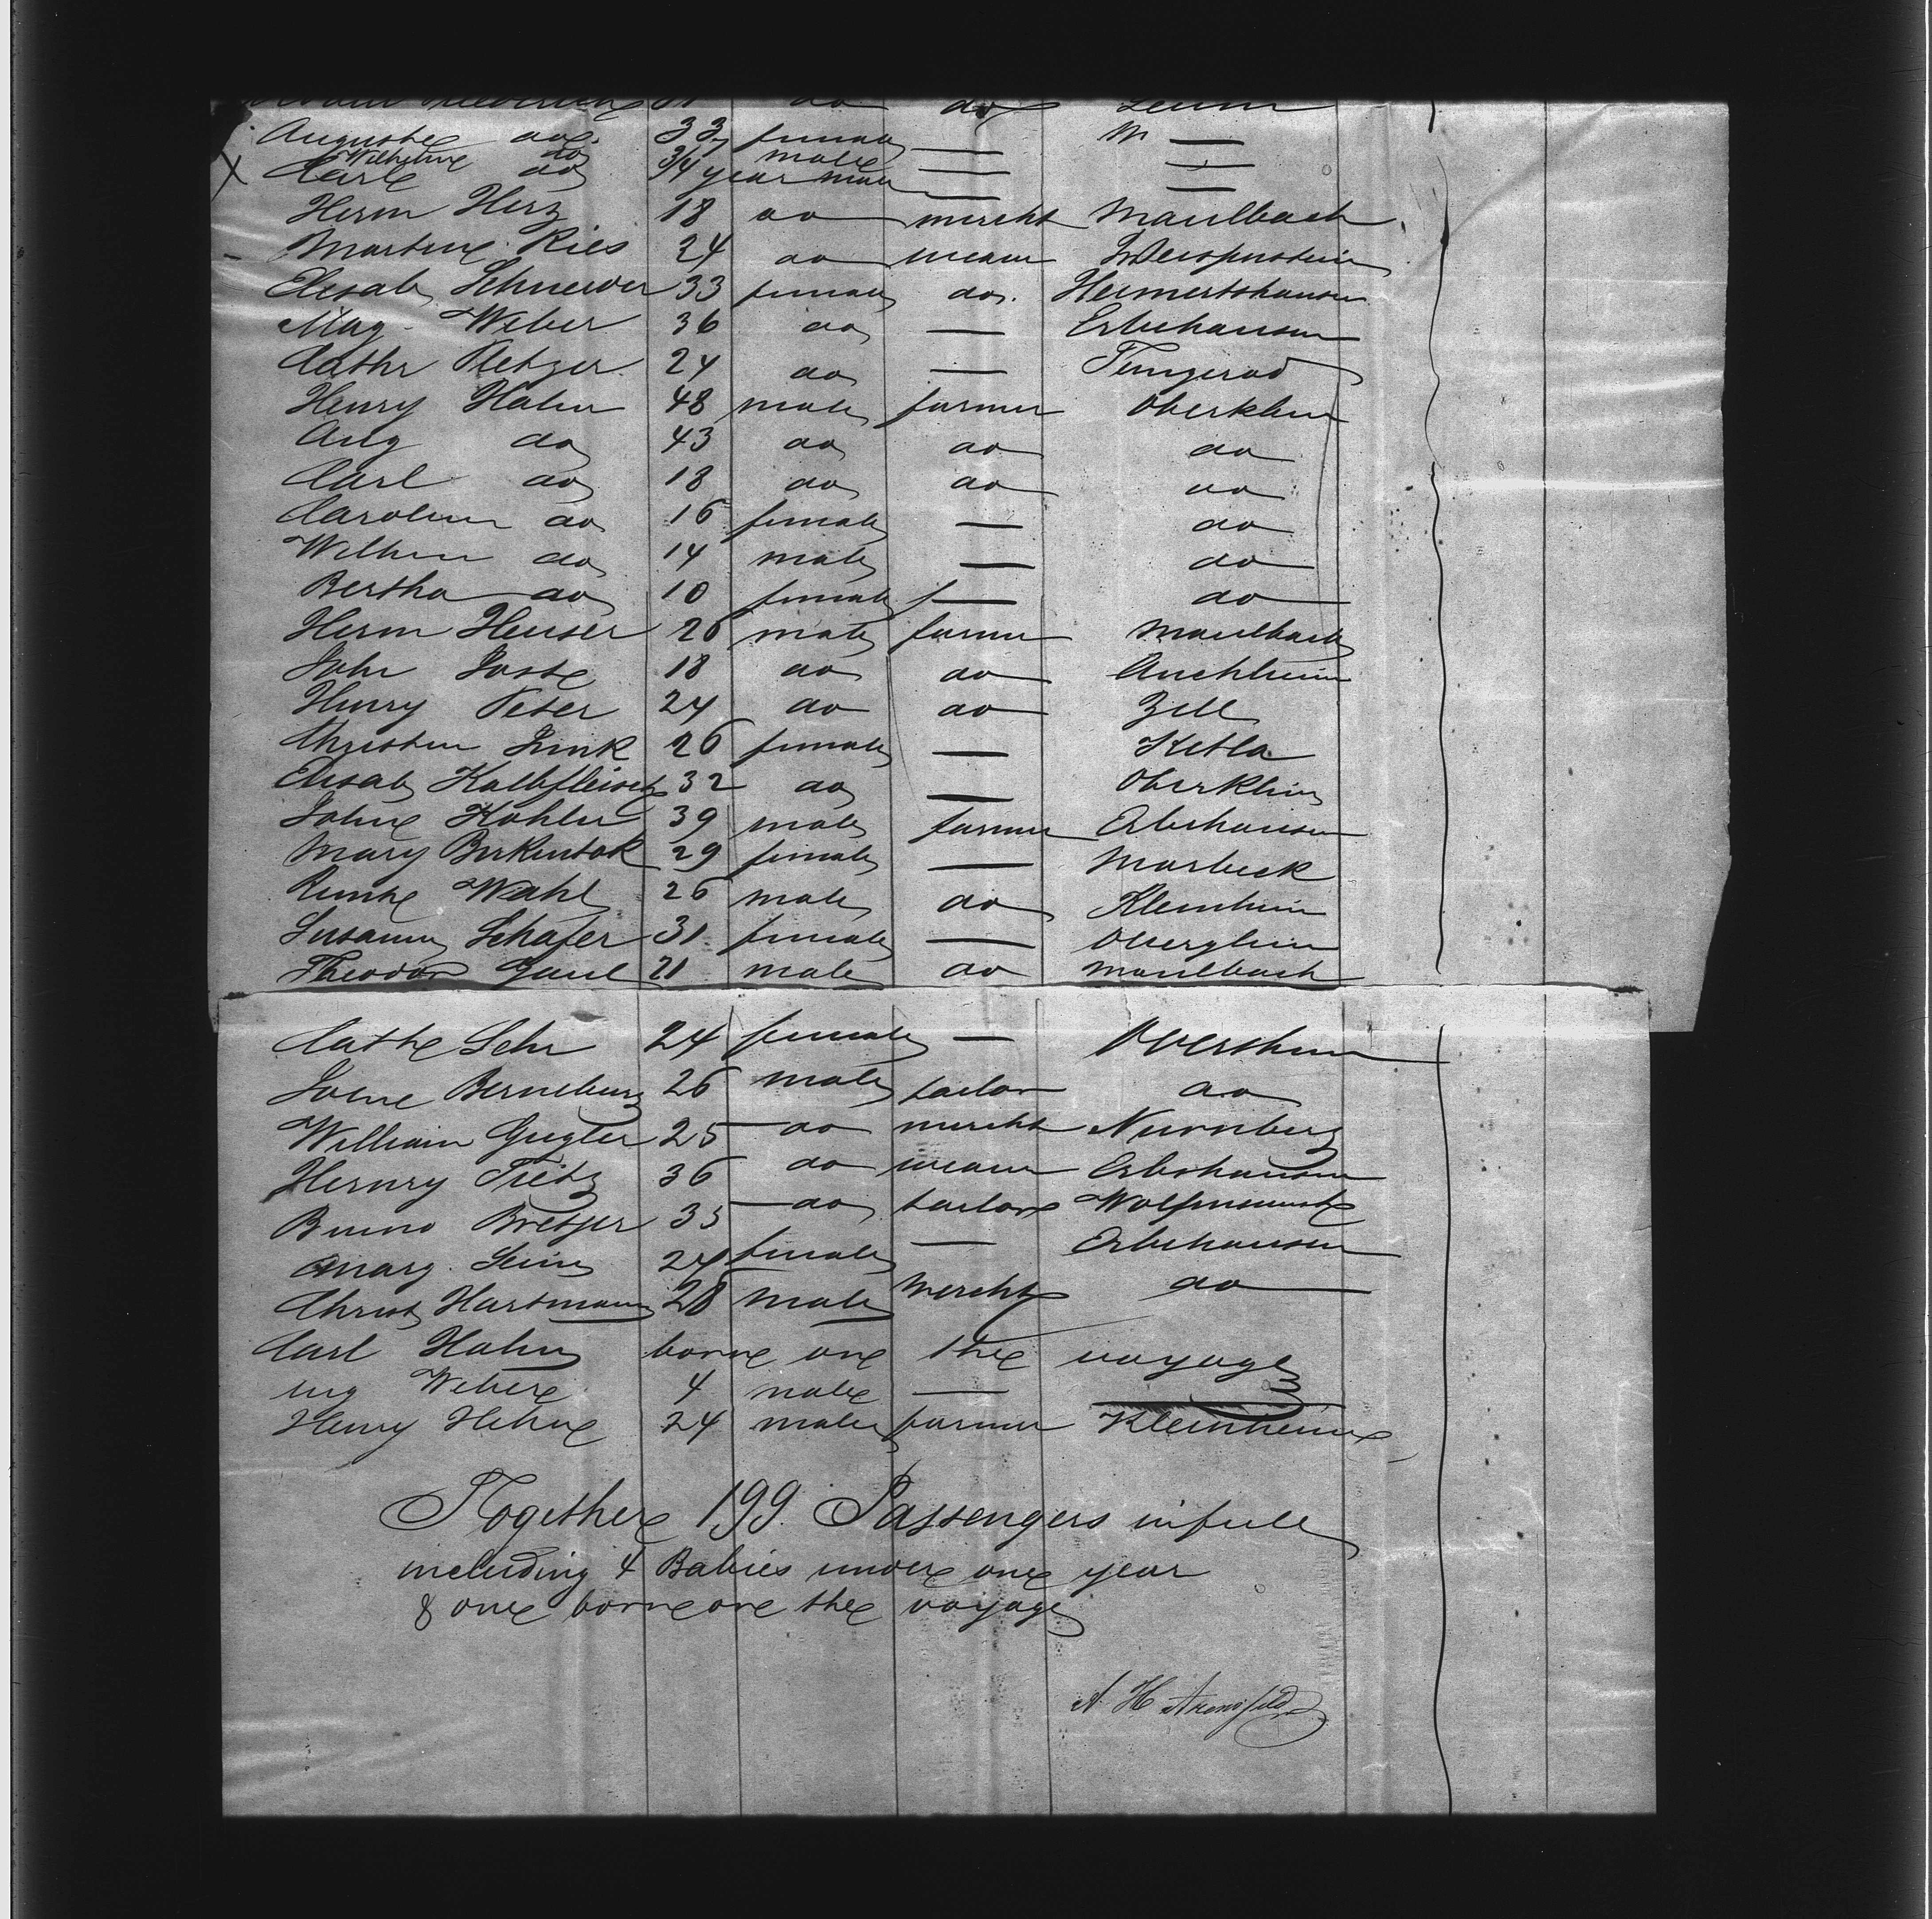 do Lehm
Auguste do 33 female — —
Wilhelm do 3 male —
Carl do 3/4 year male —
Herm Herz 18 do mercht Maulbach
Martin Ries 24 do weaver
Elisab Schneider 33 female do. Heimertshausen
Mag Weber 36 do — Erbehausen
Cathr Metzger 24 do —
Henry Hahn 48 male farmer Oberklein
Aug do 43 do do do
Carl do 18 do do do
Carolin do 16 female — do
Wilhem do 14 male — do
Bertha do 10 female — do
Herm Heuser 26 male farmer Maulbach
John Joste 18 do do
Henry Peter 24 do do Zell
Christin Funk 26 female —
Elisab Kalbfleisch 32 do — Oberklein
John Kohler 39 male farmer Erbehausen
Mary Birkenstok 29 female — Marbeck
Wahl 26 male do Kleinheim
Susanna Schafer 31 female — Oberglein
Theodor Gaul 21 male do Maulbach
Cathe Lehr 24 female —
John Berneburg 26 male tailor do
William Gugler 25 do mercht Nurnberg
Hernry Tietz 36 do weaver Erbehausen
Bruno 35 do tailor
Marg. 24 female — Erbehausen
Christ Hartmann 28 male mercht do
Carl Hahn borne one the voyage
Weber 4 male —
Henry Hehn 24 male farmer Kleinheim
Together 199. Passengers in full
including 4 Babies under one year
& one borne one the voyage
A H